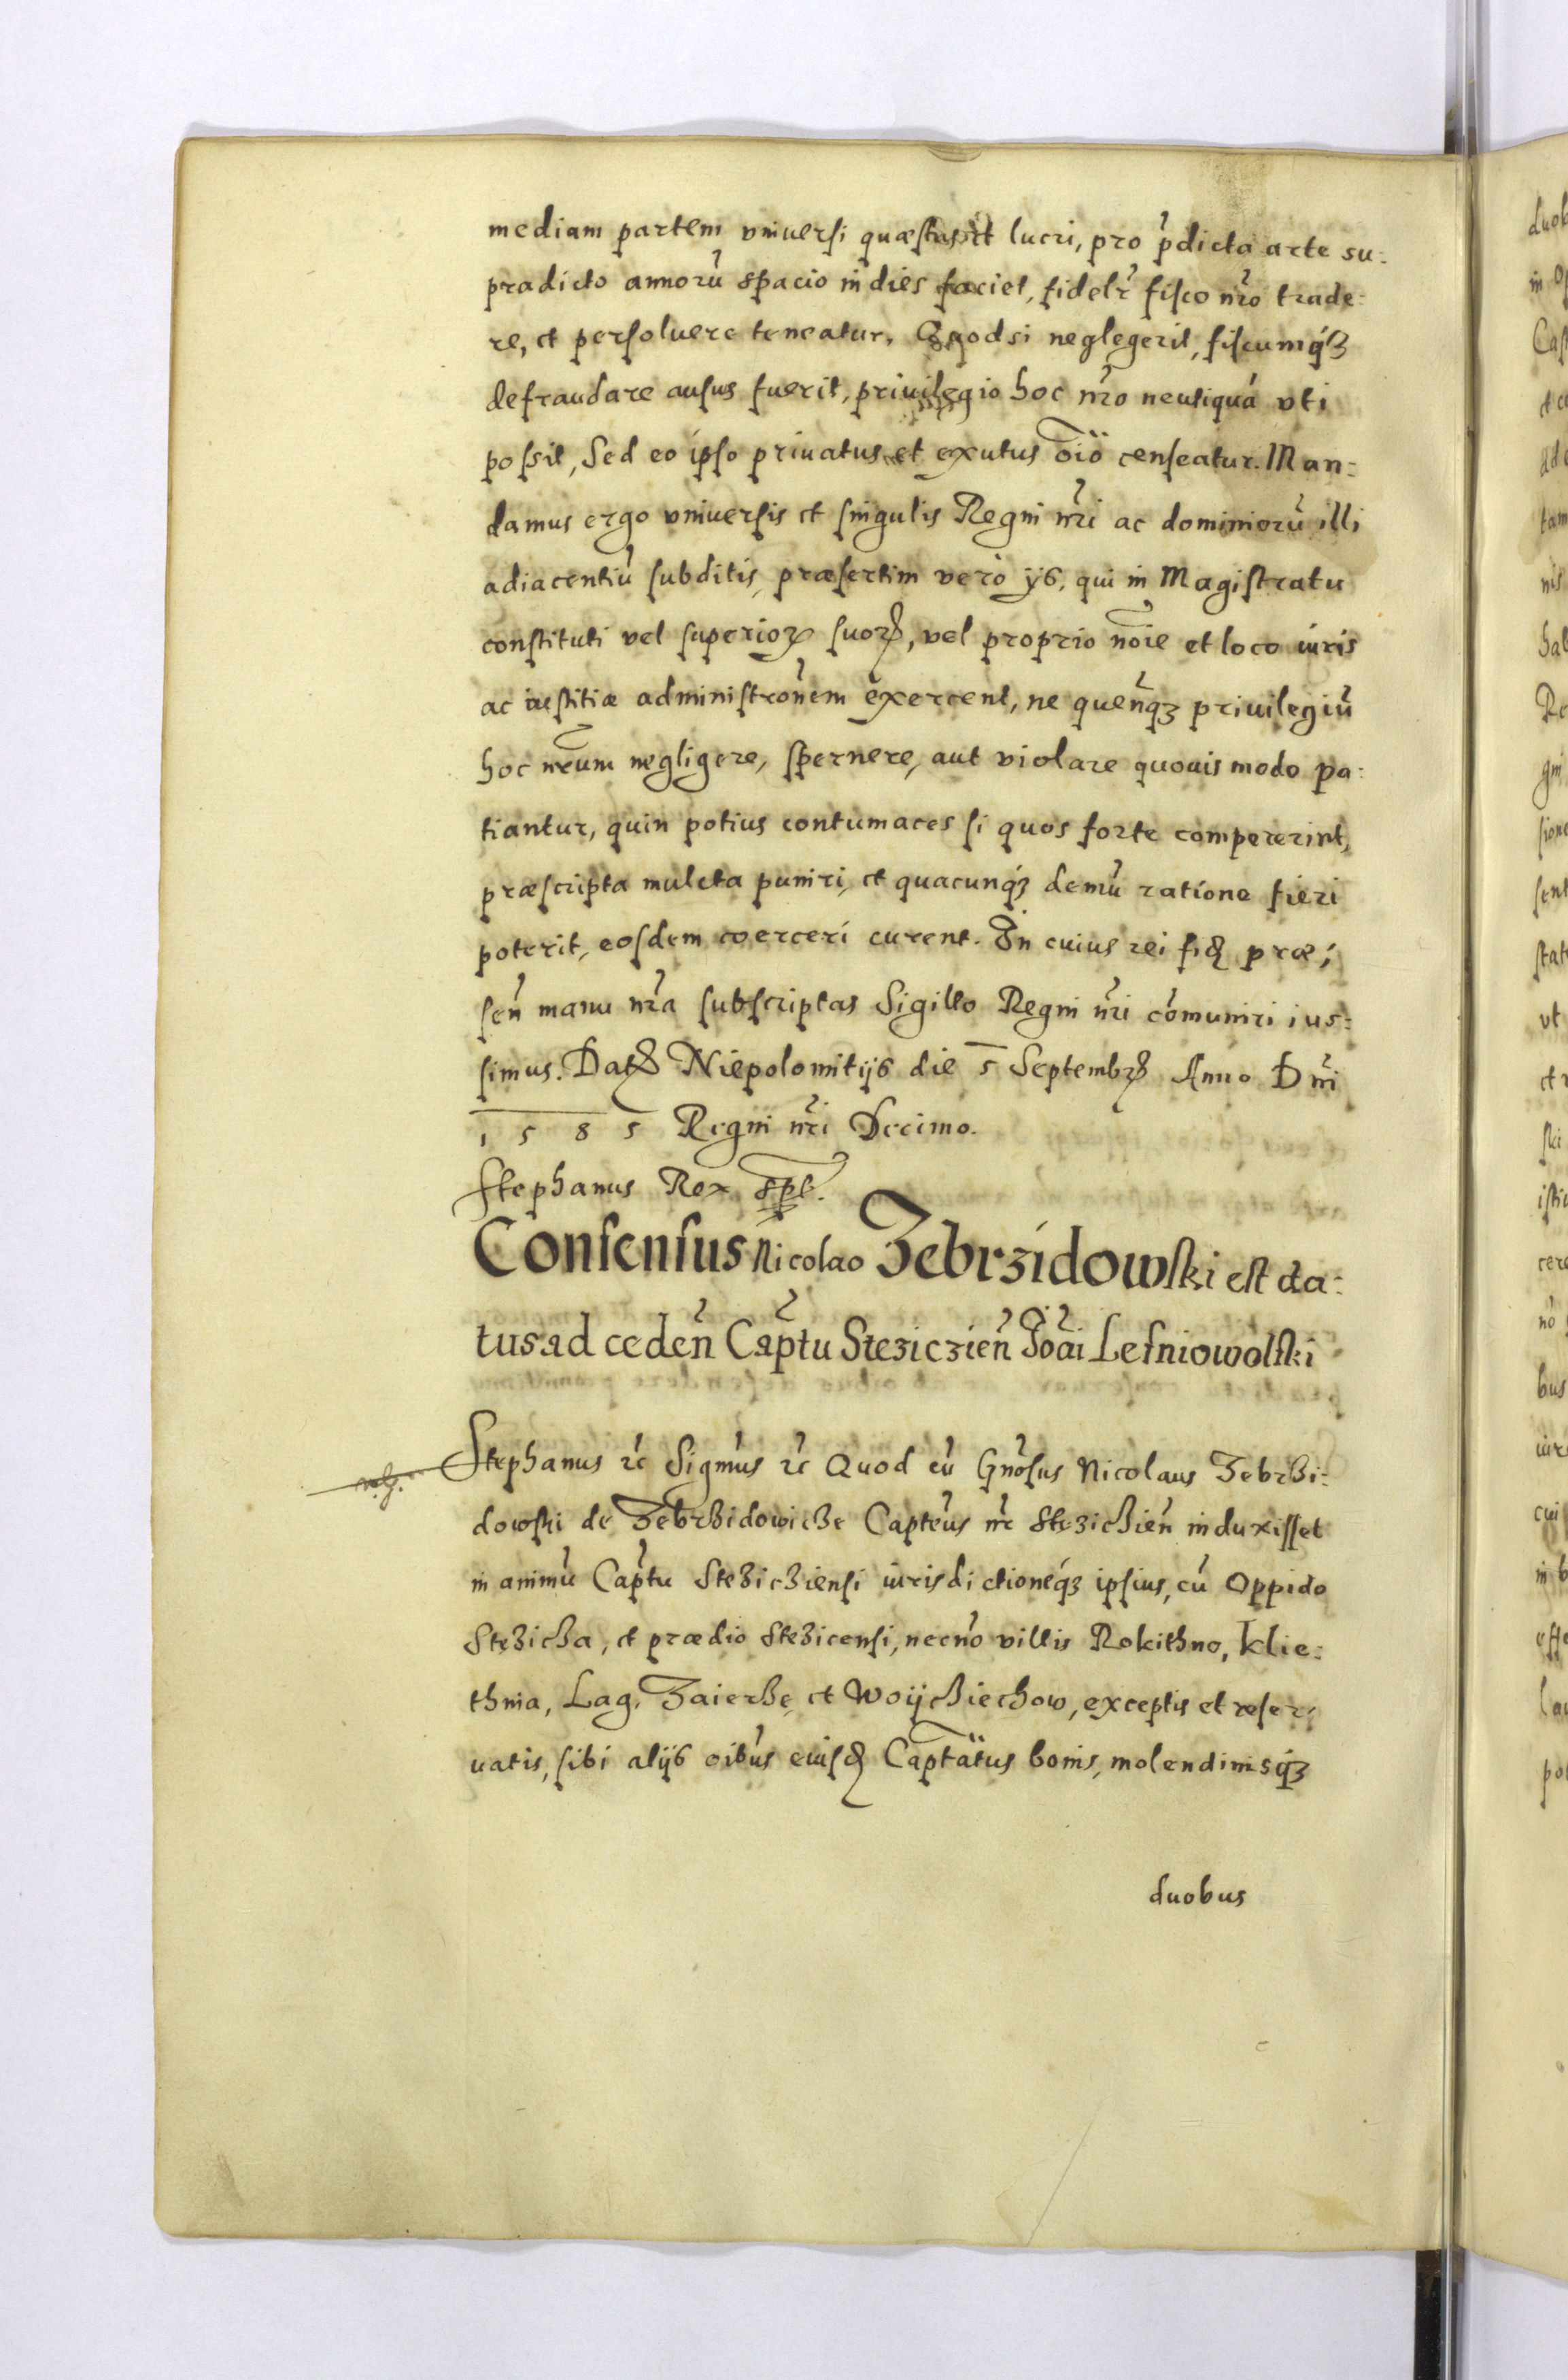 mediam partem vniuersi quæstus et lucri, pro p̃dicta arte su:
pradicto annorũ spacio in dies faciet, fidelr̃ fisco nr̃o trade:
re, et persoluere teneatur. Quodsi neglegerit, fiscumq́ʒ
defraudare ausus fuerit, priuilegio hoc nr̃o neutiquã vti
possit, Sed eo ipso priuatus et exutus oĩo censeatur. Man:
damus ergo vniuersis et singulis Regni nr̃i ac dominiorũ illi
adiacentiũ subditis, præsertim vero ijs, qui in Magistratu
constituti vel superioꝝ suoꝝ, vel proprio noĩe et loco iuris
ac iustitiæ administrõnem exercent, ne quenq̃ʒ priuilegiũ
hoc nr̃um negligere, spernere, aut violare quouis modo pa:
tiantur, quin potius contumaces si quos forte compererint,
præscripta mulcta puniri, et quacunq́ʒ demũ ratione fieri
poterit, eosdem coerceri curent. In cuius rei fiꝺ præ:
señ manu nr̃a subscriptas Sigillo Regni nr̃i cõmuniri ius:
simus. Datꝝ Niepolomitijs die 5 Septembꝝ Anno Dnĩ
1585 Regni nr̃i Decimo.
Stephanus Rex sp̃t.
Consensus Nicolao Zebrzidowski est da:
tus ad cedeñ Cap̃tu Stezicziẽn Ioãi Lesniowolski
Stephanus ꝛc̃ Sigm̃us ꝛc̃ Quod cũ Gñosus Nicolaus Zebrzi:
dowski de Zebrzidowicze Capte͂us nr̃ Steziczień induxisset
in animũ Cap̃tu Stezicziensi iurisdictioneq́ʒ ipsius, cũ Oppido
Stezicza, et prædio Stezicensi, necnõ villis Rokithno, Klie:
thnia, Lag, Zaierze, et Woijcziechow, exceptis et reser:
uatis, sibi alijs oib̃us eiusꝺ Captãtus bonis, molendinisq́ʒ
duobus